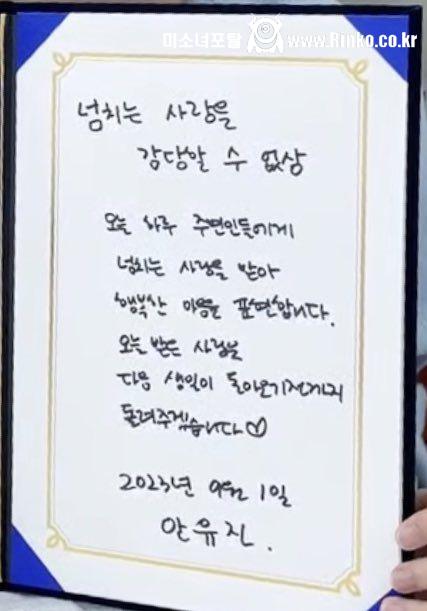 미소녀포탈 www.Rinko.co.kr
넘치는 사랑을
감당할 수 없상
오늘 하루 주변인들에게
넘치는 사랑을 받아
행복한 마음을 표현합니다.
오늘 받은 사랑을
다음 생일이 돌아오기전까지
돌려주겠습니다♡
2023년 9월 1일
안유진.